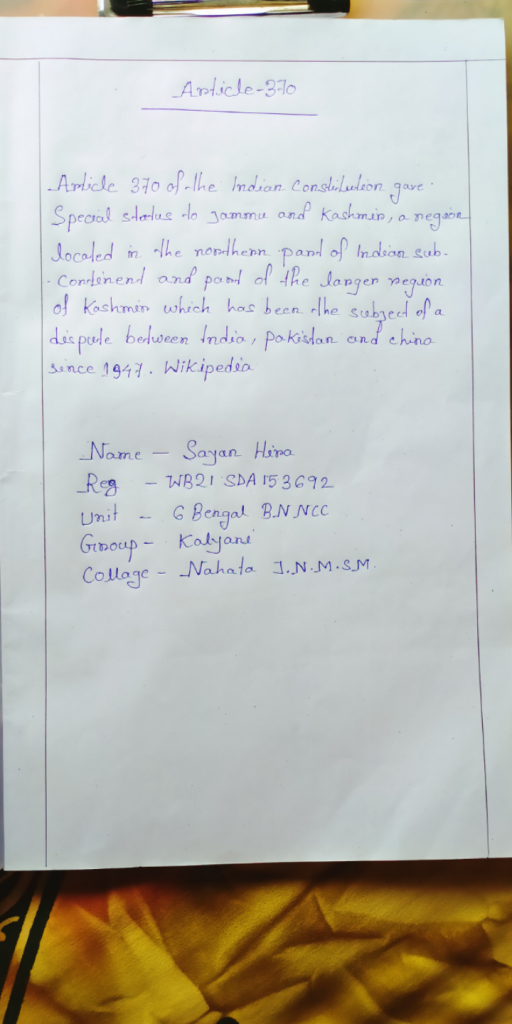 Article-370
Article 370 of the Indian Constitution gave
Special status to Jammu and Kashmir, a region
located in the northern part of Indian sub-
continent and part of the larger region
of Kashmir which has been the subject of a
dispute between India, Pakistan and china
since 1947. Wikipedia
Name - Sayan Hira
Reg - WB21 SDA 153692
Unit - 6 Bengal B.N NCC
Group - Kalyani
Collage - Nahata J.N.M.S.M.